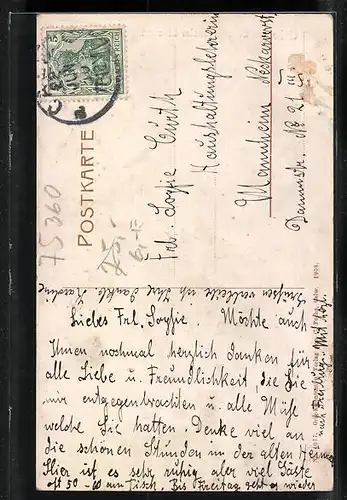 POSTKARTE
Frl. Sophie
Haushaltungslehrerin
Mannheim Neckarvorst.
Dammstr. No 21 III S.
75360
25,-
Liebes Frl. Sophie. Möchte auch
Ihnen nochmal herzlich danken für
alle Liebe u. Freundlichkeit die Sie
mir entgegenbrachten u. alle Mühe
welche Sie hatten. Denke viel an
die schönen Stunden in der alten Heimat
Hier ist es sehr ruhig aber viel Gäste
oft 50-60 am Tisch. Bis Freitag geht es wieder
nach
Grüssen verbleibe ich Ihre dankb.
1909.